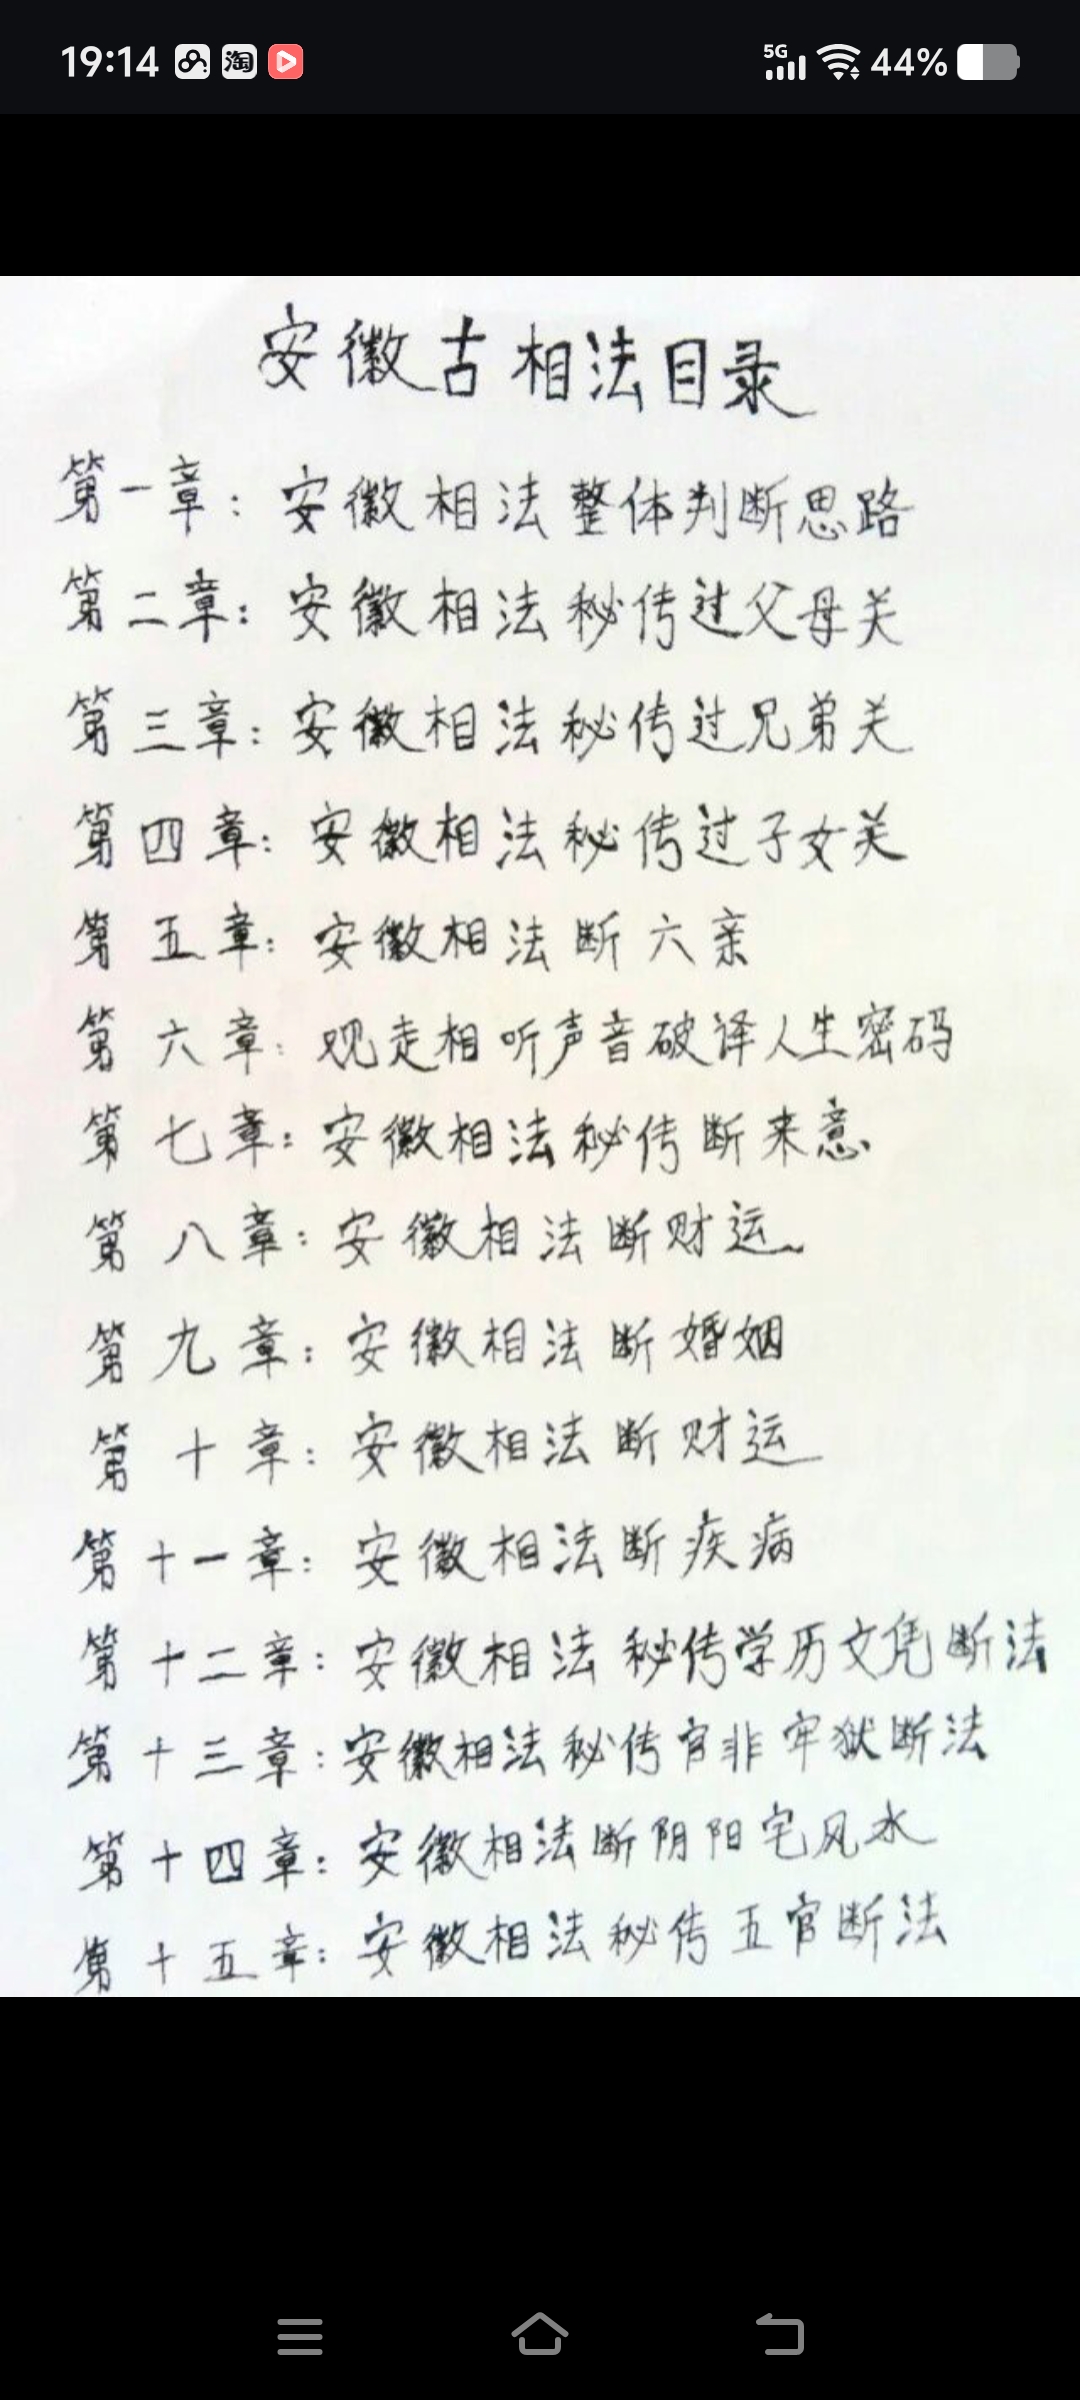 19:14 淘 5G 44%
安徽古相法目录
第一章：安徽相法整体判断思路
第二章：安徽相法秘传过父母关
第三章：安徽相法秘传过兄弟关
第四章：安徽相法秘传过子女关
第五章：安徽相法断六亲
第六章：观走相听声音破译人生密码
第七章：安徽相法秘传断来意
第八章：安徽相法断财运
第九章：安徽相法断婚姻
第十章：安徽相法断财运
第十一章：安徽相法断疾病
第十二章：安徽相法秘传学历文凭断法
第十三章：安徽相法秘传官非牢狱断法
第十四章：安徽相法断阴阳宅风水
第十五章：安徽相法秘传五官断法